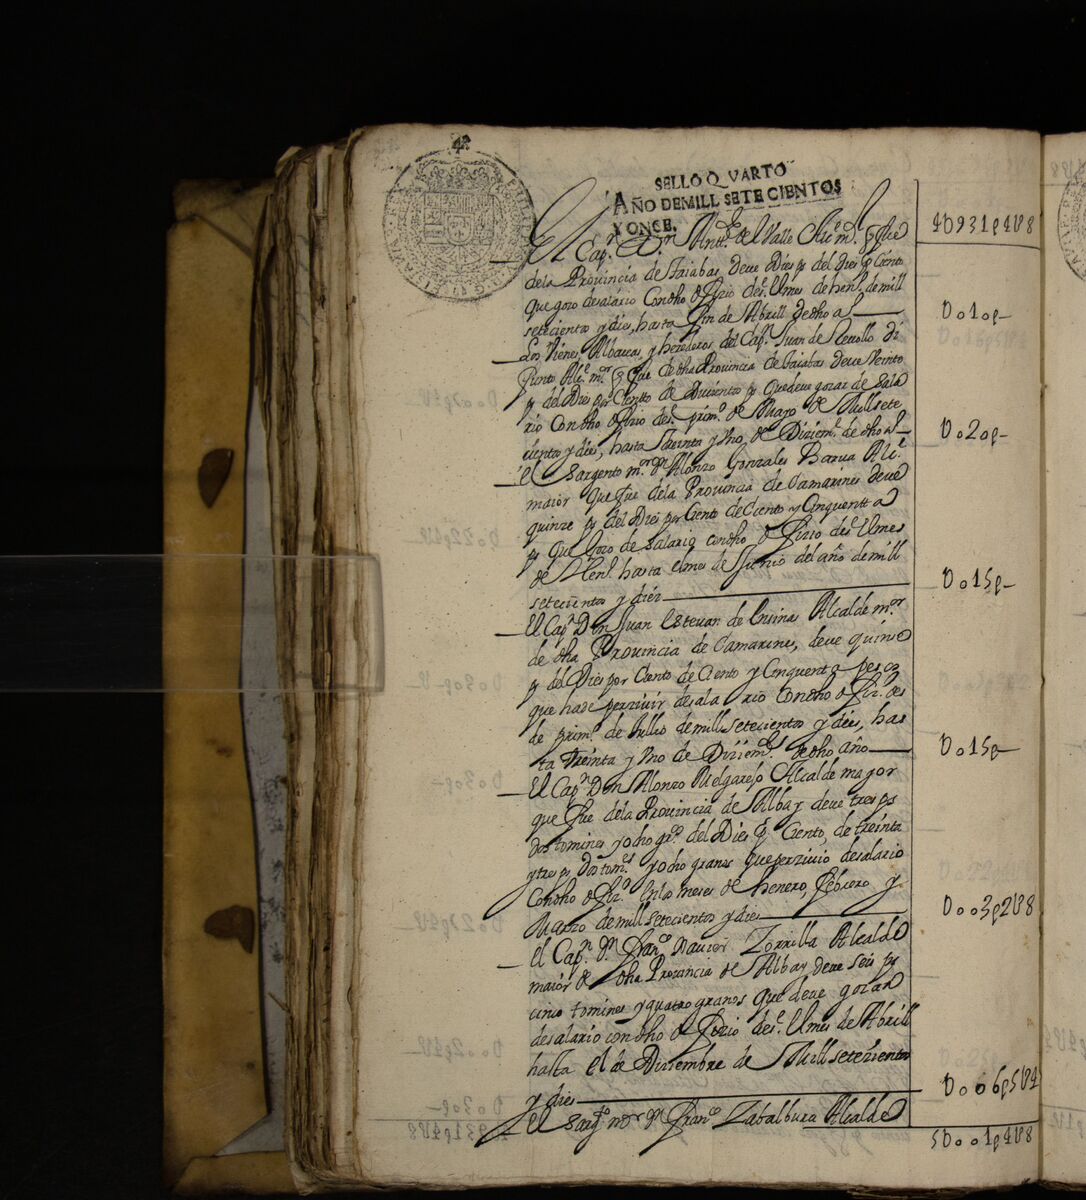 4ª
SELLO QVARTO
AÑO DE MILL SETECIENTOS
Y ONCE.
El Capⁿ. Dⁿ Antt.º del Valle Alc.e m.r q fue 4U931p4U8
dela Provincia de Taiabas, Deve Dies ps del Dies p Ciento
que gozo de salario Con dho oficio des.e el mes de hen.º de mill
setecientos y dies, hasta fin de Abrill de dho aº U010p
Los Vienes, Albaceas, y herederos del Cap.n Juan de Di
funto Alc.e m.or q fue de dha Provincia de Taiabas Deve Veinte
ps del Dies por Ciento de Ducientos ps que deve gozar de Sala
rio Con dho ofizio des.e prim.º de Mayo de Mill sete
cientos y dies, hasta treinta y Uno de Diziem.e de dho aº U020p
el Sargento m.or Dn Alonzo Gonzales Barua Alc.e
maior que fue dela Provincia de Camarines deve
quinze ps del Dies por Ciento de Ciento y Cinquentta
ps que Gozo de Salario con dho ofizio des.e el mes
de Hen.º hasta el mes de Junio del año de mill
setecientos y diez U015p
El Cap.n Don Juan Estevan de Ensinas Alcalde m.or
de dha Provincia de Camarines, deve quinse
ps del Dies por Ciento de Ciento y Cinquenta pesos
que hade perzivir de salario Con dho ofiz.º des
de prim.º de Jullio de mill setecientos y dies, has
ta treinta y Uno de Diziem.e de dho año U015p
El Cap.n Don Alonzo Melgarejo Alcalde mayor
que fue dela Provincia de Albay deve tres ps
dos tomines y ocho gr.s del Dies p Ciento, de treinta
y tres ps Dos tom.s y ocho granos que perzivio de salario
Con dho ofiz.º en los meses de henero, febrero y
Marzo de mill setecientos y dies U003p2U8
el Cap.n Dn Fran.co Xavier Zorrilla Alcalde
maior de dha Provincia de Albay Deve seis ps
cinco tomines y quatro granos que deve gozar
de salario con dho ofizio des.e el mes de Abrill
hasta el de Diziembre de Mill setezientos
y dies U006p5U4
el Sarg.to m.or Dn Fran.co Zabalbura Alcalde
5U001p4U8